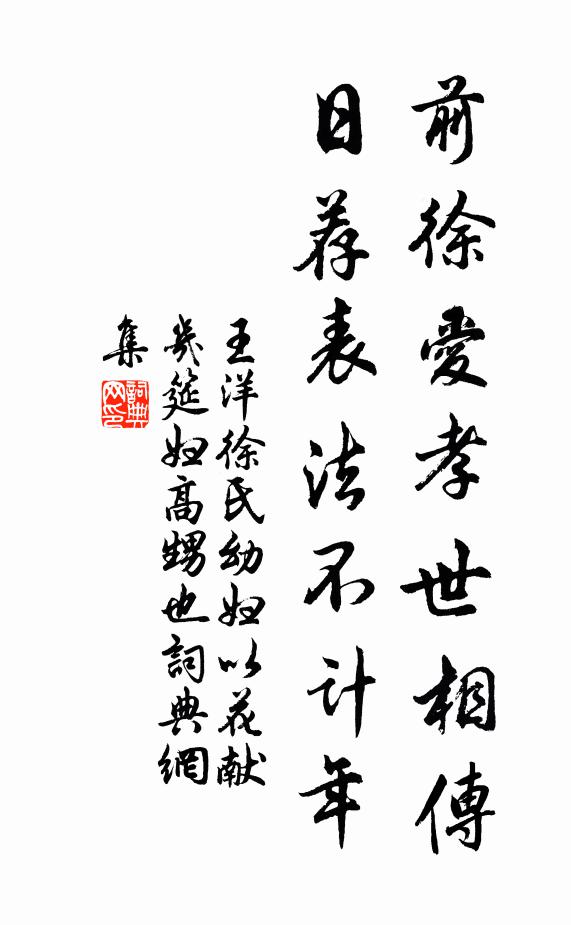 前徐愛孝世相傳
日荐表法不计年
王洋徐氏幼妇以花献
几筵妇高甥也詞典網
集
詞典網印